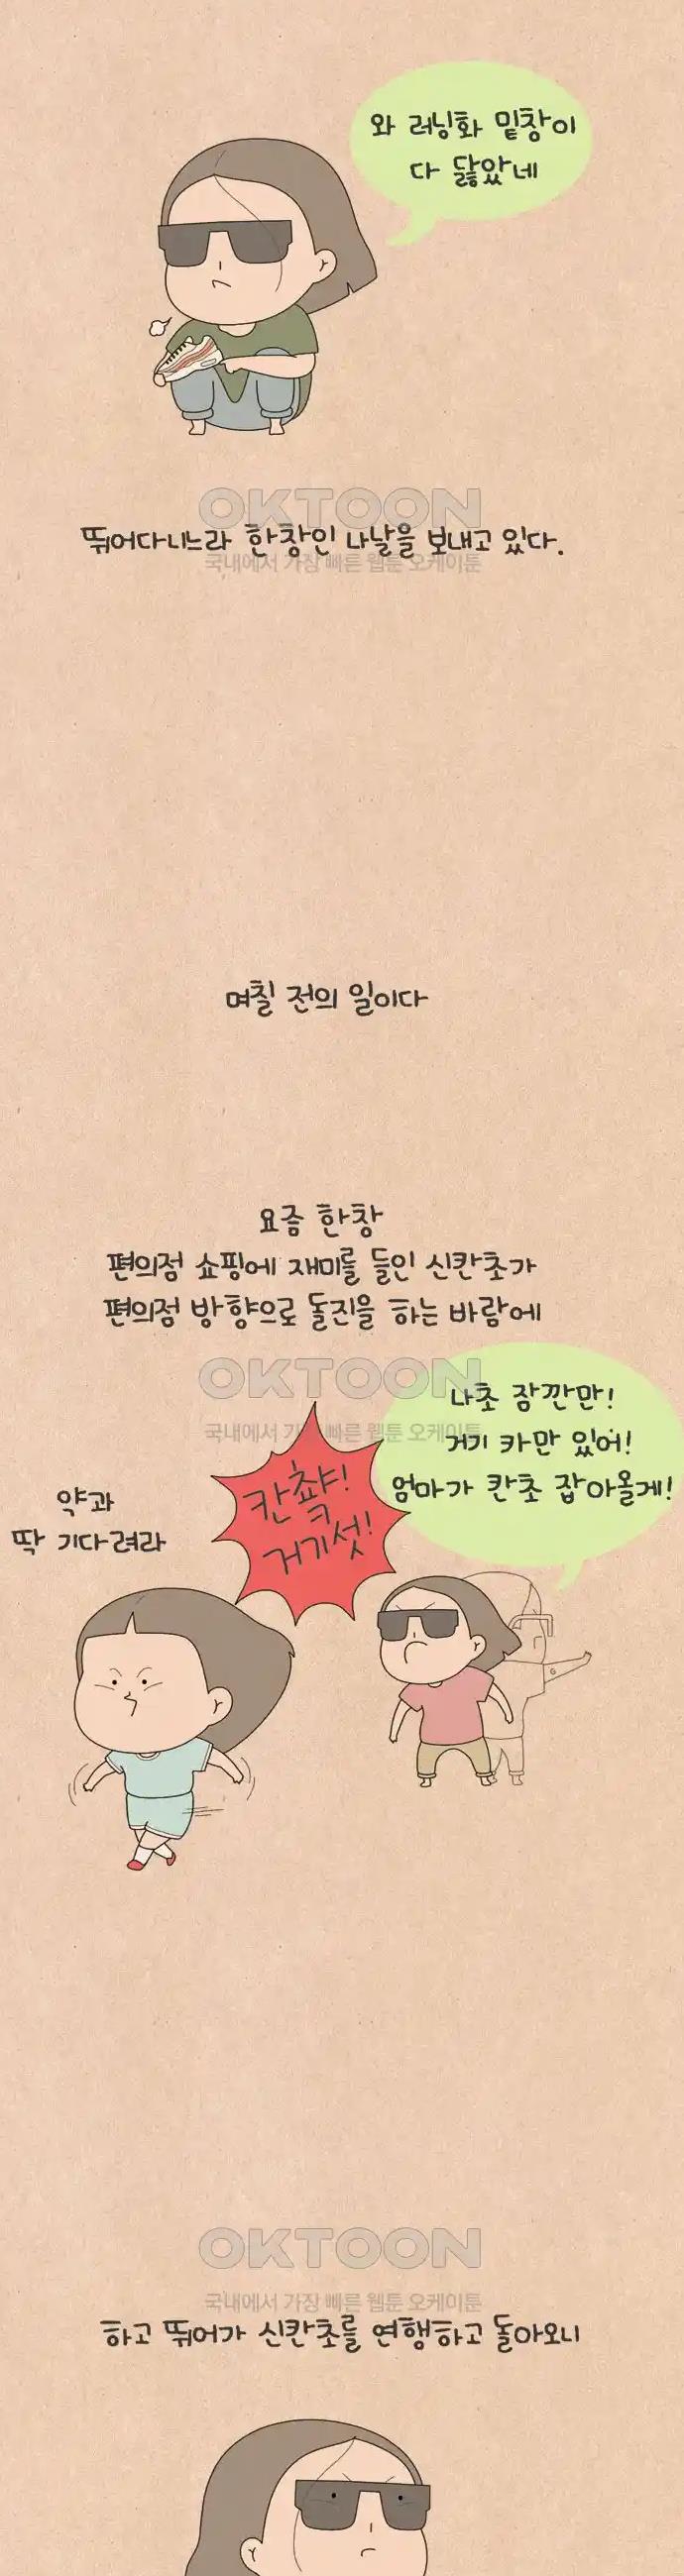 와 러닝화 밑창이
다 닳았네
OKTOON
뛰어다니느라 한창인 나날을 보내고 있다.
국내에서 가장 빠른 웹툰 오케이툰
며칠 전의 일이다
요즘 한창
편의점 쇼핑에 재미를 들인 신칸초가
편의점 방향으로 돌진을 하는 바람에
OKTOON
국내에서 가장 빠른 웹툰 오케이툰
나초 잠깐만!
거기 카만 있어!
엄마가 칸초 잡아올게!
칸쵹!
거기섯!
약과
딱 기다려라
OKTOON
국내에서 가장 빠른 웹툰 오케이툰
하고 뛰어가 신칸초를 연행하고 돌아오니